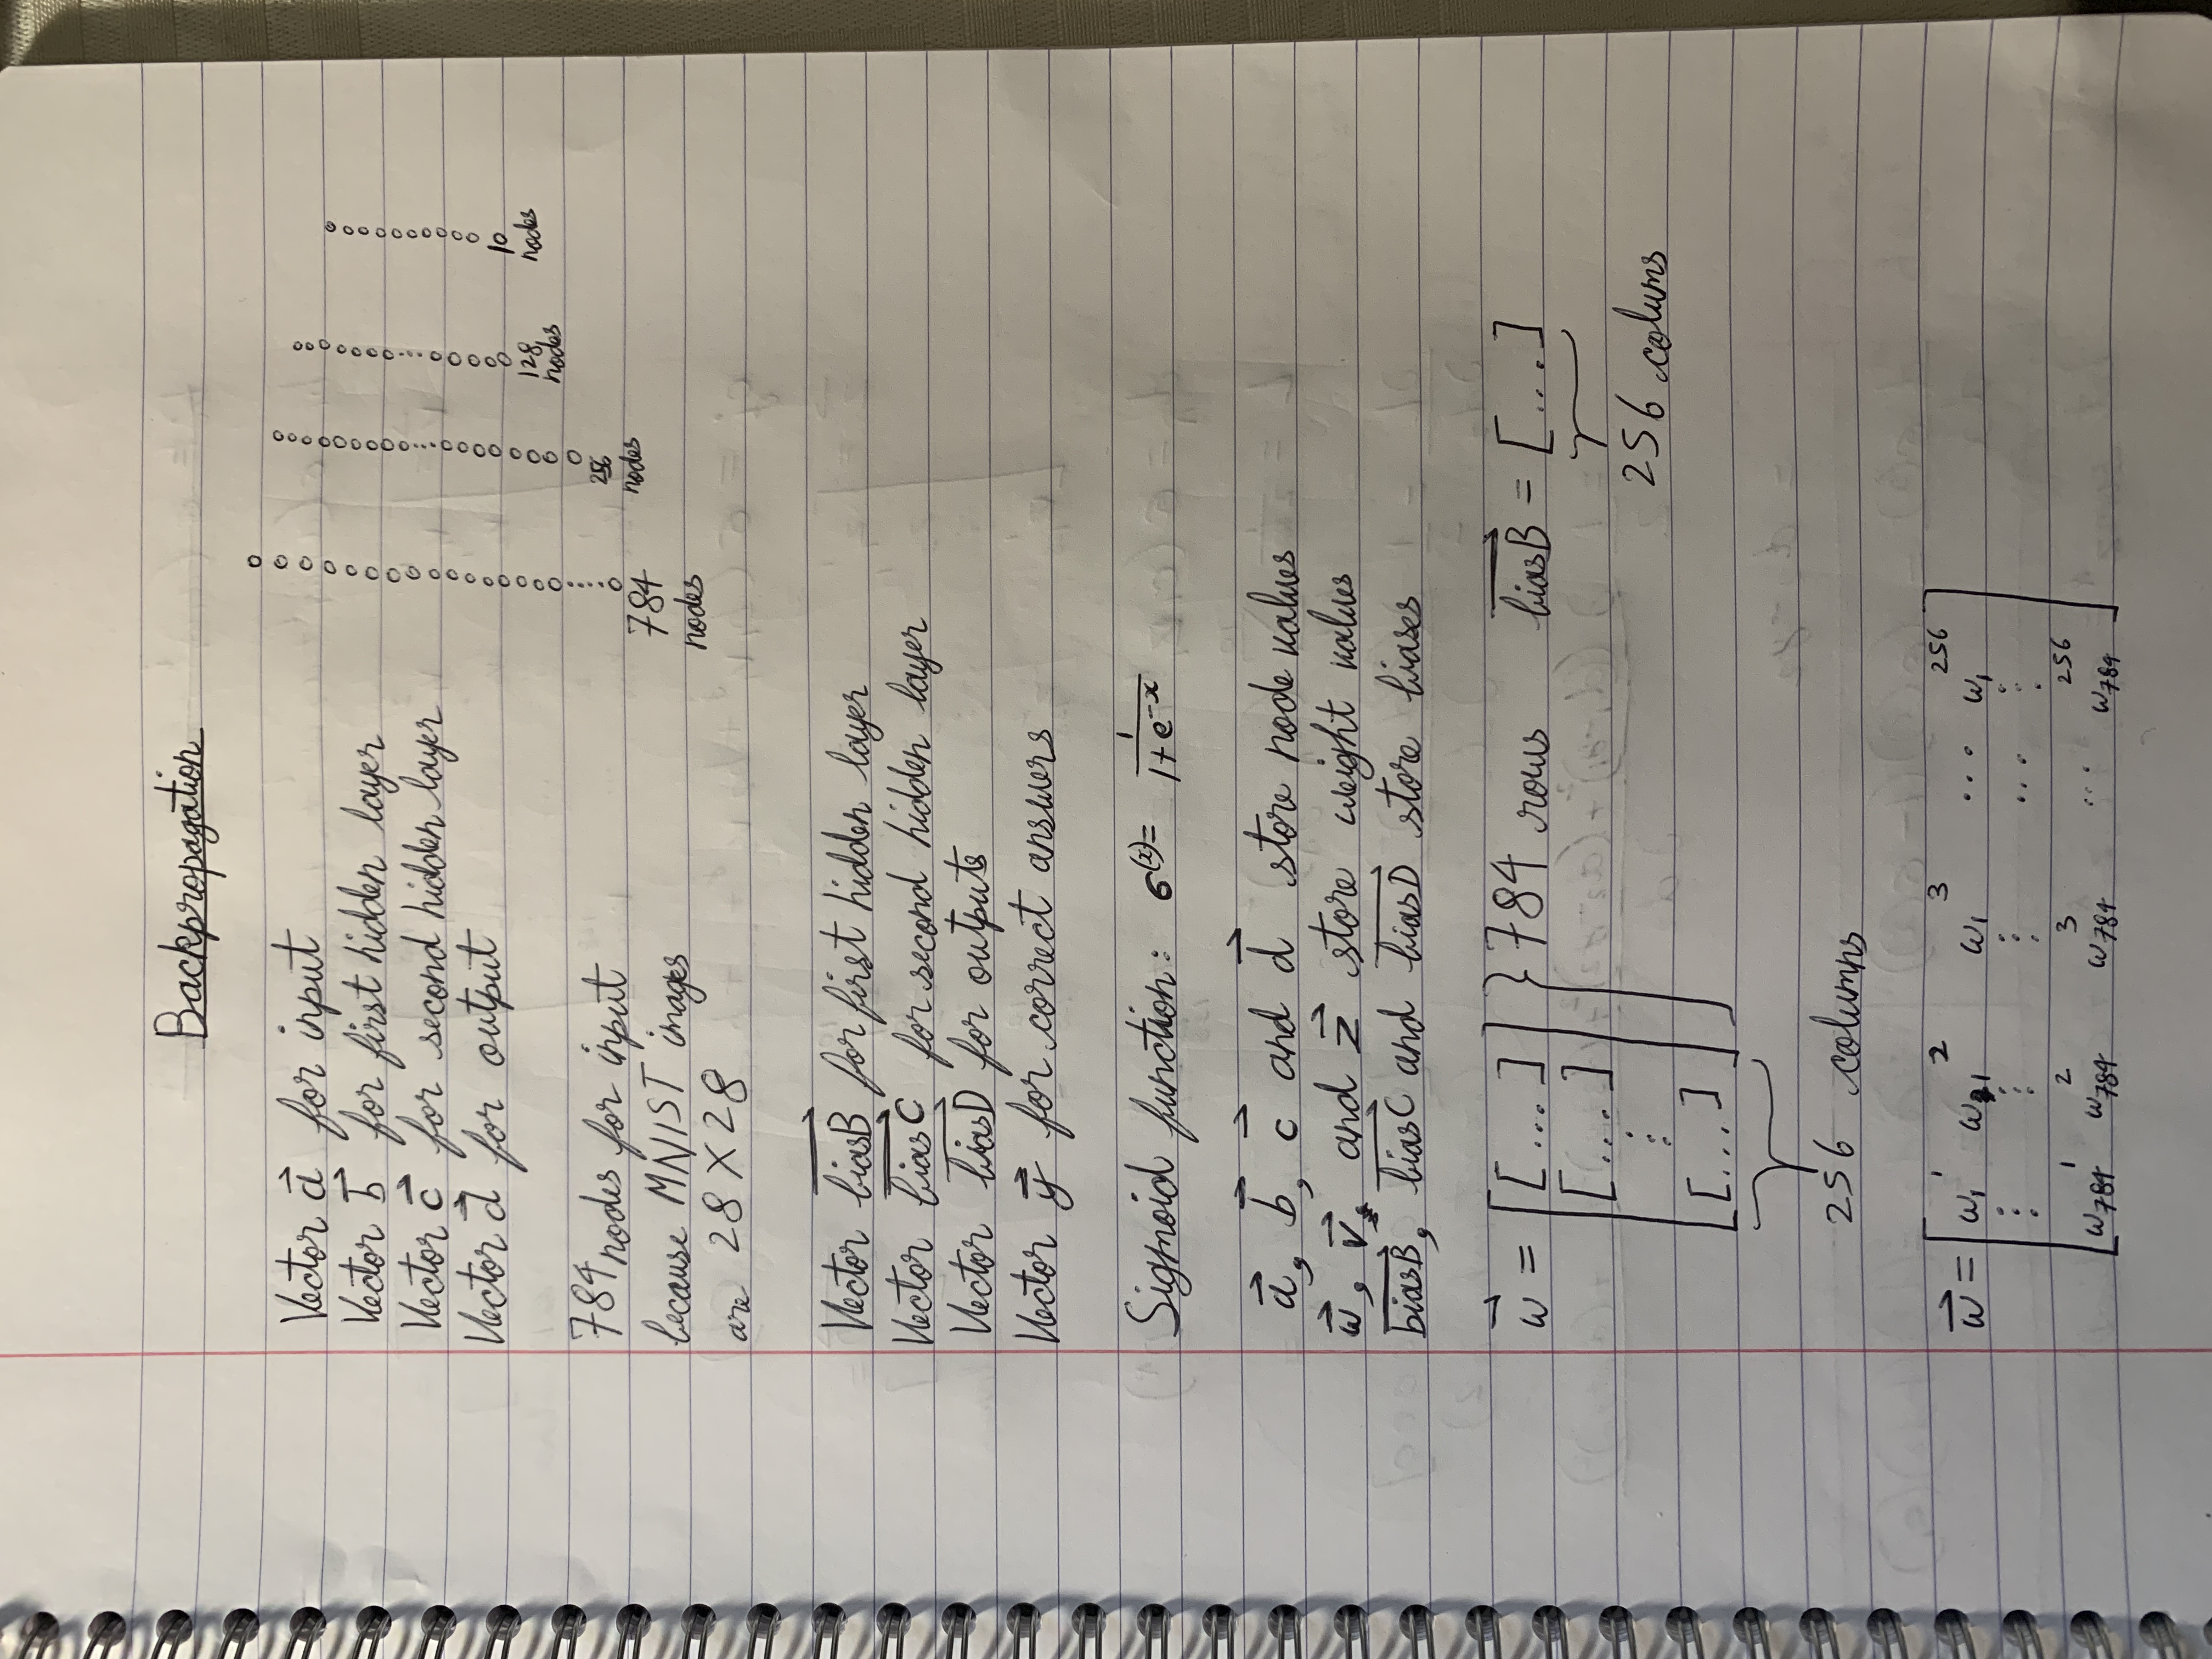 Backpropagation
Vector a⃗ for input
Vector b⃗ for first hidden layer
Vector c⃗ for second hidden layer
Vector d⃗ for output
784 nodes
256 nodes
128 nodes
10 nodes
784 nodes for input
because MNIST images
are 28 X 28
Vector biasB for first hidden layer
Vector biasC for second hidden layer
Vector biasD for outputs
Vector y⃗ for correct answers
Sigmoid function: σ(x) = 1/(1+e^-x)
a⃗, b⃗, c⃗ and d⃗ store node values
w⃗, v⃗, and z⃗ store weight values
biasB, biasC and biasD store biases
w⃗ = [[...] } 784 rows biasB = [...]
[....]
⋮
[...]]
256 colums
256 columns
w⃗ = [ w₁¹ w₁² w₁³ ... w₁²⁵⁶
⋮ ⋮ ⋮ ... ⋮
w₇₈₄¹ w₇₈₄² w₇₈₄³ ... w₇₈₄²⁵⁶ ]